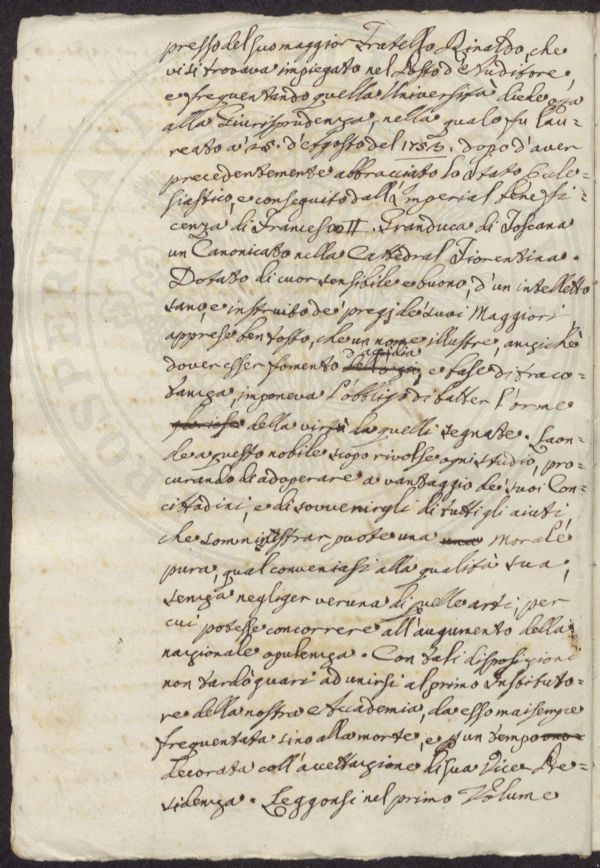 presso del suo maggior Fratello Rinaldo, che
vi si trovava impiegato nel Posto d'Auditore,
e frequentando quella Università diede opera
alla Giurisprudenza, nella quale fu lau=
reato a' 28. d'Agosto del 1753. dopo d'aver
precedentemente abbracciato lo Stato Eccle=
siastico, e conseguito dall'Imperial Benefi=
cenza di Francesco II. Granduca di Toscana
un Canonicato nella Cattedral Fiorentina.
Dotato di cuor sensibile e buono, d'un intelletto
sano, e instruito de' pregj de' suoi Maggiori
apprese ben tosto, che un nome illustre, anzichè
d'
dover esser fomento e base di traco=
tanza, imponeva l'obbligo di batter l'orme
gloriose della virtù da quelli segnate. Laon=
de a questo nobile scopo rivolse ogni studio, pro=
curando di adoperare a vantaggio de' suoi Con=
cittadini, e di sovvenirgli di tutti gli aiuti
che somministrar puote una una Morale
pura, qual conveniasi alla qualità sua,
senza negliger veruna di quelle arti, per
cui potesse concorrere all'augumento della
nazionale opulenza. Con tali disposizioni
non tardò guari ad unirsi al primo Institutore=
re della nostra Accademia, da esso mai sempre
frequentata sino alla morte, e p. un tempo
decorata coll'accettazione di sua Vice Pre=
sidenza. Leggonsi nel primo Volume